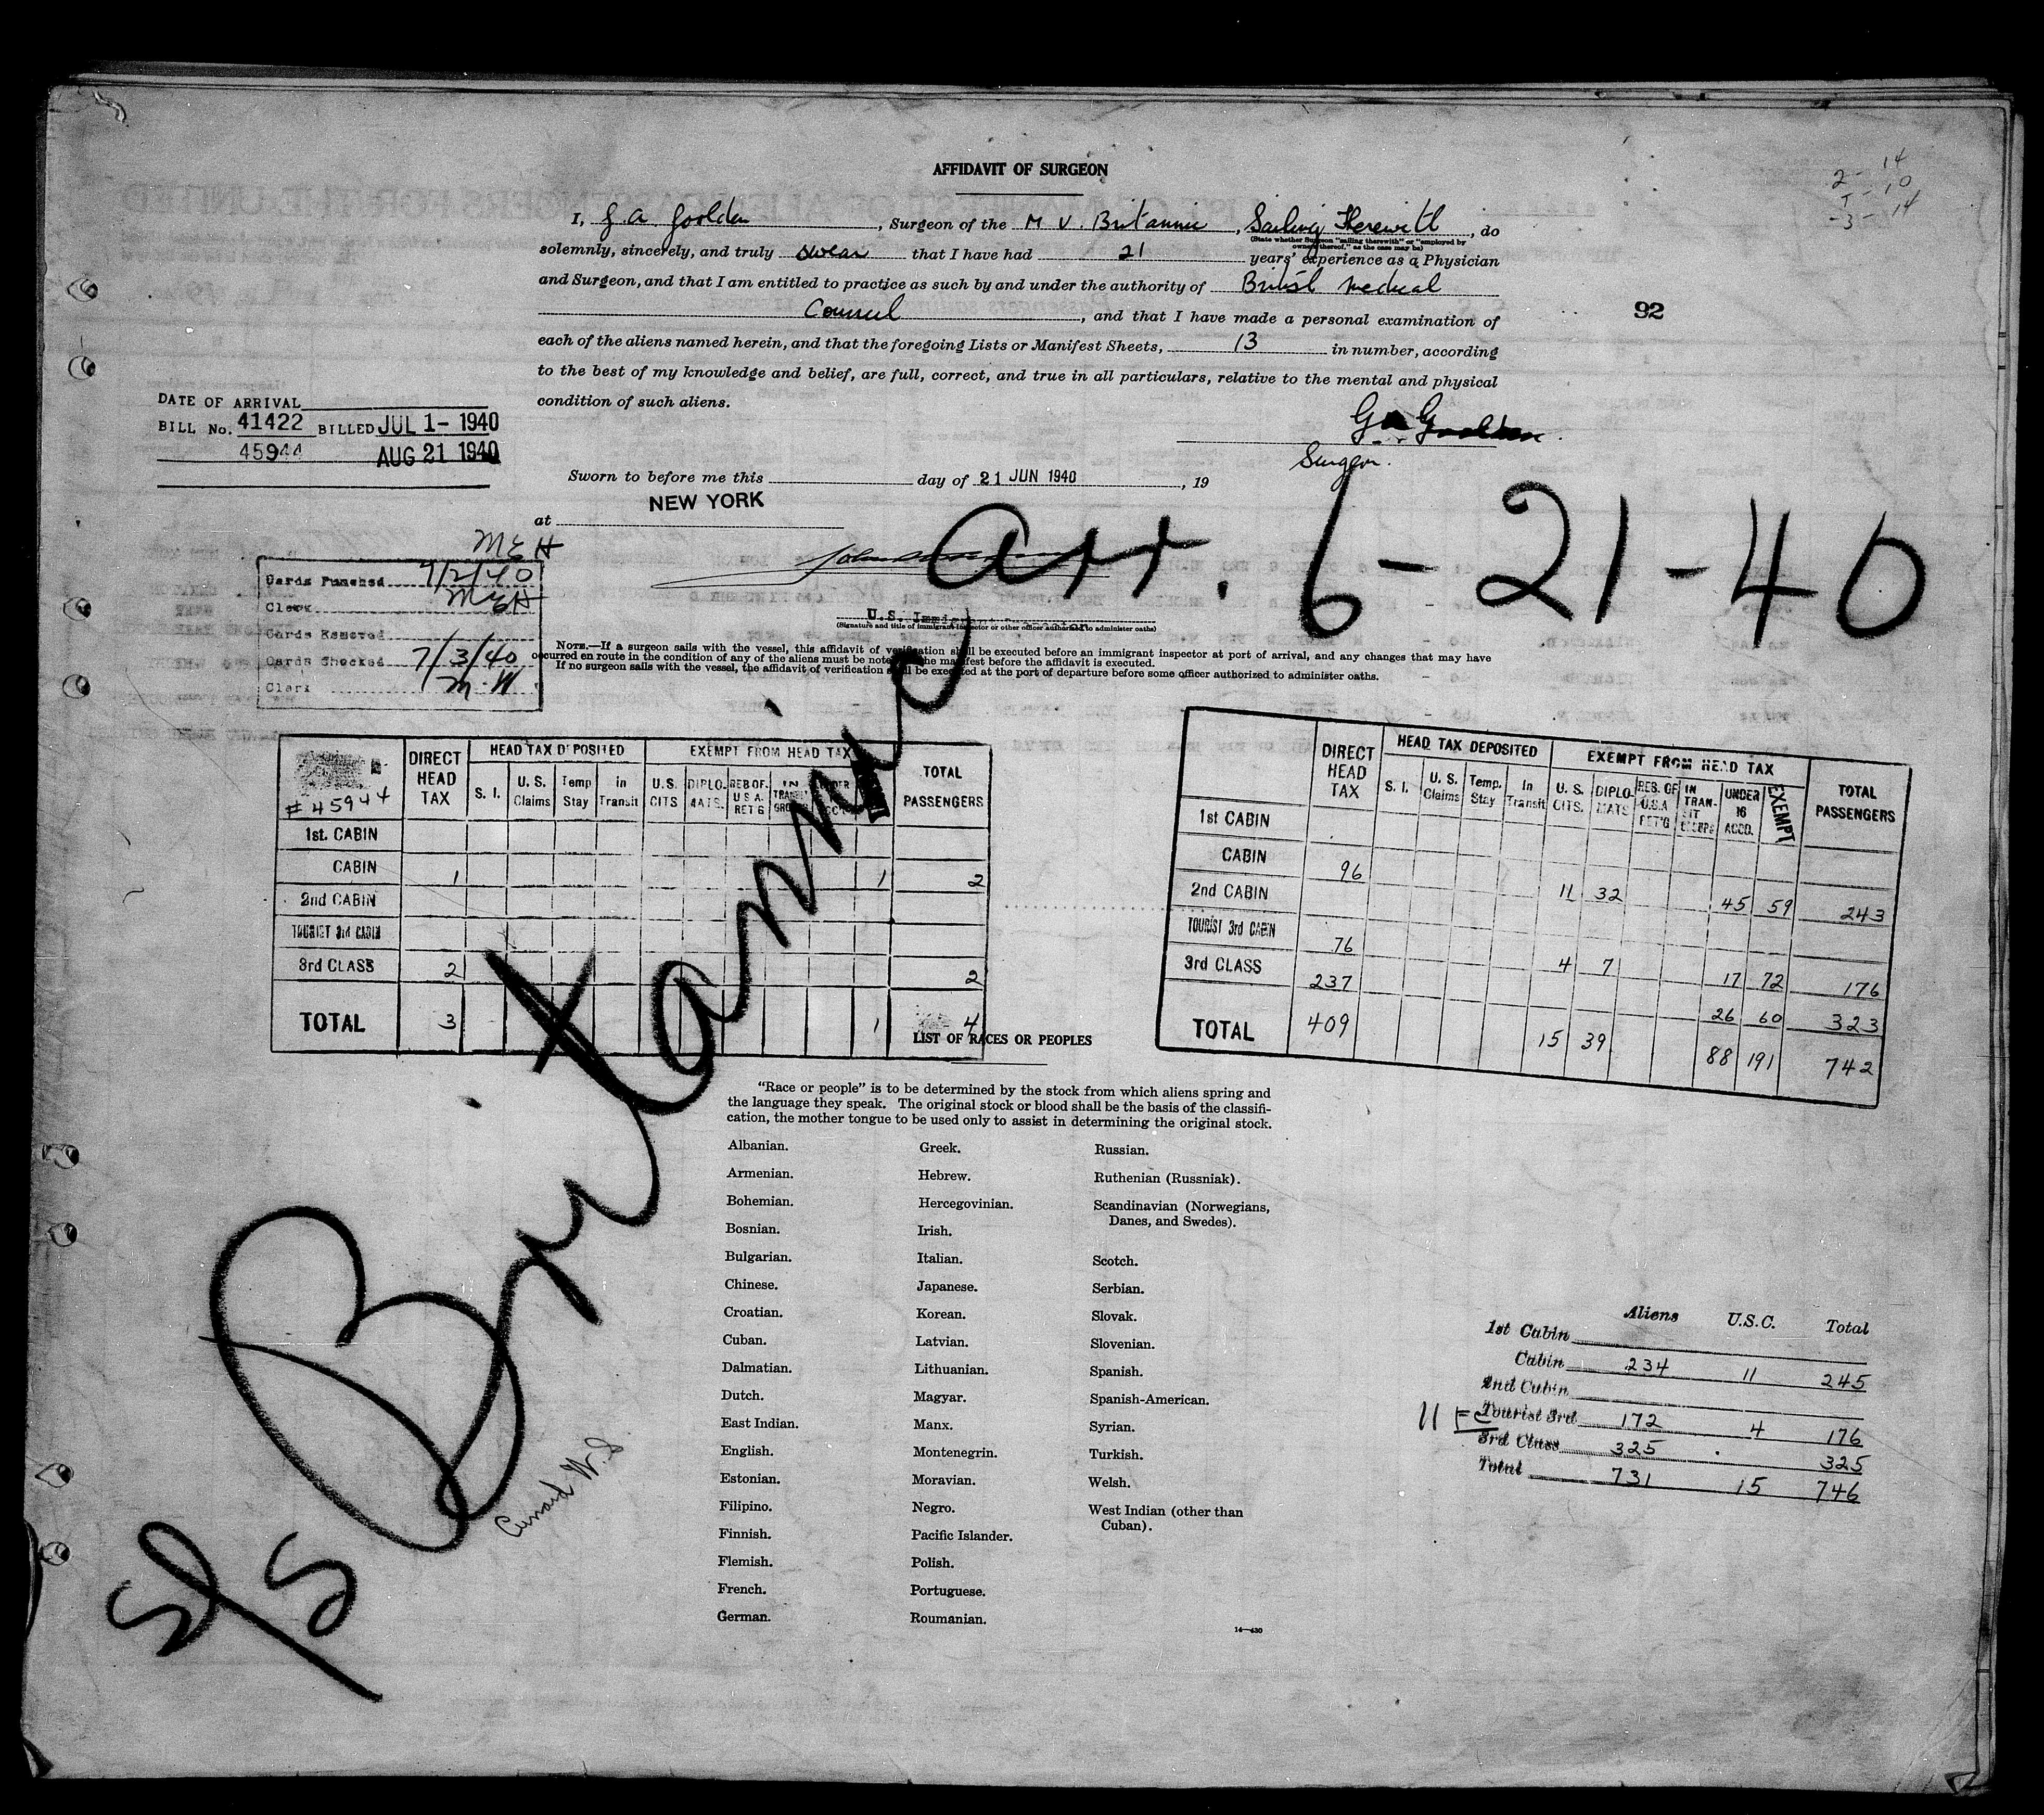 AFFIDAVIT OF SURGEON
2 - 14
T - 10
-3- 14
I, G A Goolden, Surgeon of the M V. Britannic, Sailing Therewith, do
(State whether Surgeon "sailing therewith" or "employed by
owners thereof," as the case may be)
solemnly, sincerely, and truly swear that I have had 21 years' experience as a Physician
and Surgeon, and that I am entitled to practice as such by and under the authority of British Medical
Council, and that I have made a personal examination of
92
each of the aliens named herein, and that the foregoing Lists or Manifest Sheets, 13 in number, according
to the best of my knowledge and belief, are full, correct, and true in all particulars, relative to the mental and physical
condition of such aliens.
DATE OF ARRIVAL
BILL No. 41422 BILLED JUL 1- 1940
45944 AUG 21 1940
G A Goolden
Surgeon.
Sworn to before me this day of 21 JUN 1940, 19
NEW YORK
at
arr. 6-21-40
U.S. Immigrant Inspector
(Signature and title of immigrant inspector or other officer authorized to administer oaths)
MEH
Cards Punched 7/2/40
Clerk MEH
Cards Removed
Cards Checked 7/3/40
Clerk M.W
NOTE.—If a surgeon sails with the vessel, this affidavit of verification shall be executed before an immigrant inspector at port of arrival, and any changes that may have
occurred en route in the condition of any of the aliens must be noted on the manifest before the affidavit is executed.
If no surgeon sails with the vessel, the affidavit of verification shall be executed at the port of departure before some officer authorized to administer oaths.
# 45944
DIRECT HEAD TAX
HEAD TAX DEPOSITED
EXEMPT FROM HEAD TAX
TOTAL PASSENGERS
S. I. U. S. Claims Temp Stay in Transit U.S. CITS DIPLO-MATS. REB OF. U S A. RET'G IN TRANSIT
1st. CABIN
CABIN 1 1 2
2nd CABIN
TOURIST 3rd CABIN
3rd CLASS 2 2
TOTAL 3 1 4
DIRECT HEAD TAX
HEAD TAX DEPOSITED
EXEMPT FROM HEAD TAX
TOTAL PASSENGERS
S. I. U. S. Claims Temp. Stay in Transit U. S. CITS. DIPLO-MATS REB. OF U.S.A RET'G IN TRAN-SIT GROUPS UNDER 16 ACCD. EXEMPT
1st CABIN
CABIN 96 11 32 45 59 243
2nd CABIN
TOURIST 3rd CABIN 76 4 7 17 72 176
3rd CLASS 237 26 60 323
TOTAL 409 15 39 88 191 742
S/S Britannic
Cunard W.S
LIST OF RACES OR PEOPLES
"Race or people" is to be determined by the stock from which aliens spring and
the language they speak. The original stock or blood shall be the basis of the classifi-
cation, the mother tongue to be used only to assist in determining the original stock.
Albanian.
Armenian.
Bohemian.
Bosnian.
Bulgarian.
Chinese.
Croatian.
Cuban.
Dalmatian.
Dutch.
East Indian.
English.
Estonian.
Filipino.
Finnish.
Flemish.
French.
German.
Greek.
Hebrew.
Hercegovinian.
Irish.
Italian.
Japanese.
Korean.
Latvian.
Lithuanian.
Magyar.
Manx.
Montenegrin.
Moravian.
Negro.
Pacific Islander.
Polish.
Portuguese.
Roumanian.
Russian.
Ruthenian (Russniak).
Scandinavian (Norwegians,
Danes, and Swedes).
Scotch.
Serbian.
Slovak.
Slovenian.
Spanish.
Spanish-American.
Syrian.
Turkish.
Welsh.
West Indian (other than
Cuban).
Aliens U.S.C. Total
1st Cabin
Cabin 234 11 245
2nd Cabin
Tourist 3rd 172 4 176
3rd Class 325 325
Total 731 15 746
14—430